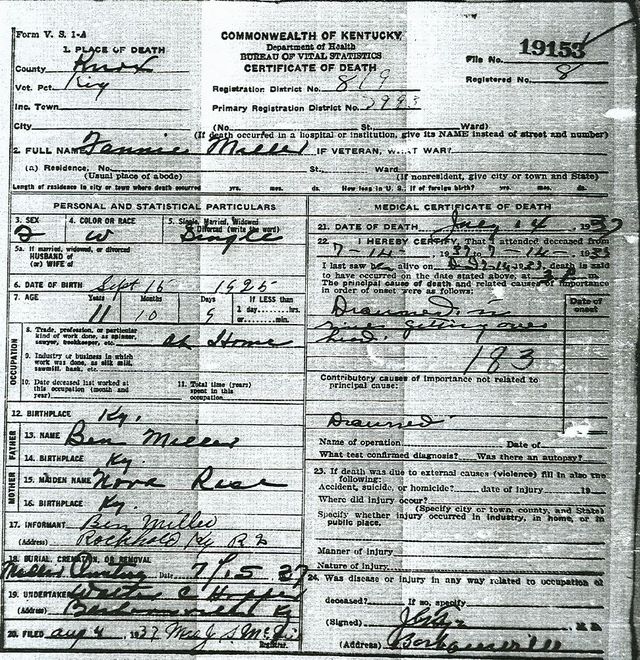 Form V. S. 1-A
COMMONWEALTH OF KENTUCKY
Department of Health
BUREAU OF VITAL STATISTICS
CERTIFICATE OF DEATH
File No. 19153
Registered No. 8
1. PLACE OF DEATH
County Knox
Vot. Pct. Kay
Inc. Town
City
Registration District No. 819
Primary Registration District No.
(No. St. Ward)
(If death occurred in a hospital or institution, give its NAME instead of street and number)
2. FULL NAME Fannie Miller IF VETERAN, WHAT WAR?
(a) Residence, No. St., Ward
(Usual place of abode) (If nonresident, give city or town and State)
Length of residence in city or town where death occurred yrs. mos. ds. How long in U. S., if of foreign birth? yrs. mos. ds.
PERSONAL AND STATISTICAL PARTICULARS
3. SEX F
4. COLOR OR RACE W
5. Single, Married, Widowed, Divorced (write the word) Single
5a. If married, widowed, or divorced
HUSBAND of
(or) WIFE of
6. DATE OF BIRTH Sept 15 1925
7. AGE Years 11 Months 10 Days If LESS than
1 day, hrs.
or min.
OCCUPATION
8. Trade, profession, or particular
kind of work done, as spinner,
sawyer, bookkeeper, etc. at Home
9. Industry or business in which
work was done, as silk mill,
sawmill, bank, etc.
10. Date deceased last worked at
this occupation (month and
year)
11. Total time (years)
spent in this
occupation
12. BIRTHPLACE Ky.
FATHER
13. NAME Ben Miller
14. BIRTHPLACE Ky
MOTHER
15. MAIDEN NAME Nora Rice
16. BIRTHPLACE Ky.
17. INFORMANT Ben Miller
(Address) Rockhold Ky R 2
18. BURIAL, CREMATION, OR REMOVAL
Miller Date 7/15 37
19. UNDERTAKER Walter C Hopper
(Address) Barbourville Ky
20. FILED Aug 4 1937
Registrar.
MEDICAL CERTIFICATE OF DEATH
21. DATE OF DEATH July 14 1937
22. I HEREBY CERTIFY, That I attended deceased from
7-14-
I last saw alive on death is said
to have occurred on the date stated above, at
The principal cause of death and related causes of importance
in order of onset were as follows:
Date of
onset
Drowned in
getting over
head.
183
Contributory causes of importance not related to
principal cause:
Drowned
Name of operation Date of
What test confirmed diagnosis? Was there an autopsy?
23. If death was due to external causes (violence) fill in also the
following:
Accident, suicide, or homicide? date of injury 19
Where did injury occur?
(Specify city or town, county, and State)
Specify whether injury occurred in industry, in home, or in
public place.
Manner of injury
Nature of injury
24. Was disease or injury in any way related to occupation of
deceased? If so, specify
(Signed) M.D.
(Address) Barbourville